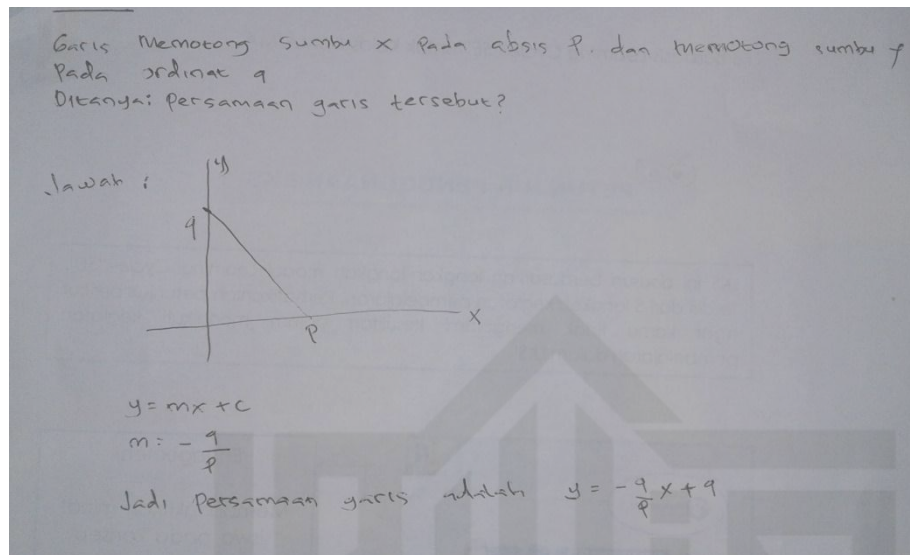 Garis memotong sumbu x pada absis p. dan memotong sumbu y
pada ordinat q
Ditanya: persamaan garis tersebut?
Jawab :
y
q
p
x
y = mx + c
m = - q/p
Jadi persamaan garis adalah y = - q/p x + q